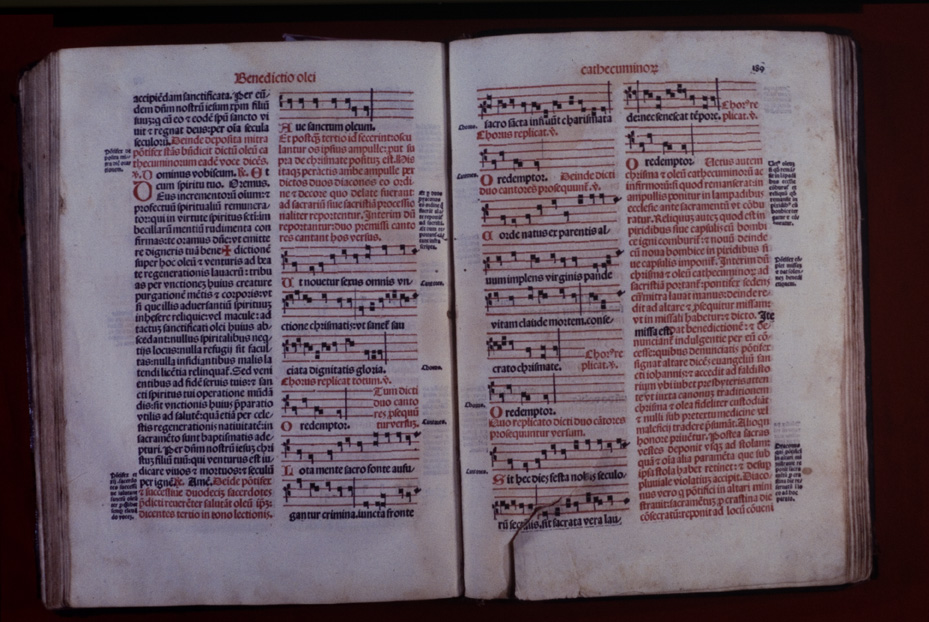 Benedictio olei
accipiēdam sanctificata. Per eū/
dem dūm nostrū iesum xpm filiū
suū: q cū eo & eodē spū sancto vi
uit & regnat deus: per oīa secula
seculorū. Deinde deposita mitra
pōtifex stās bñdicit dictū oleū ca
thecuminorum eadē voce dicēs.
℣. Dominus vobiscum. ℟. Et
cum spiritu tuo. Oremus.
Deus incrementorū oīum: &
profectuū spiritualiū remunera/
tor: qui in virtute spiritus sc̄ti im
becillarū mentiū rudimenta con
firmas: te oramus dn̄e: vt emitte
re digneris tuā bene ✠ dictionē
super hoc oleū: & venturis ad bea
te regenerationis lauacrū: tribu
as per vnctionez huius creature
purgationē mētis & corporis: vt
si que illis aduersantiū spirituū
inhesere reliquie: vel macule: ad
tactuz sanctificati olei huius ab/
scedant: nullus spiritalibus neq
tijs locus: nulla refugij sit facul/
tas: nulla insidiantibus malis la
tendi licētia relinquat. Sed veni
entibus ad fidē seruis tuis: & san
cti spiritus tui operatione mūdā
dis: sit vnctionis huius pparatio
vtilis ad salutē: quā etiā per cele/
stis regenerationis natiuitatē: in
sacramēto sunt baptismatis ade/
pturi. Per dūm nostrū iesuz chri
stuz filiū tuū: qui venturus est iu/
dicare viuos & mortuos: & seculū
per ignē. ℟. Amē. Deīde pōtifex
& successiue duodeciz sacerdotes
pdicti reuerēter salutāt oleū ipz:
dicentes tertio in tono lectionis.
Aue sanctum oleum.
Et postq̄ tertio id fecerint: oscu
lantur os ipsius ampulle: put su
pra de chrismate positus est. His
itaqz peractis ambe ampulle per
dictos duos diaconos eo ordi/
ne & decore quo delate fuerant:
ad sacrariū siue sacristiā processio
naliter reportentur. Interim dū
reportantur: duo premissi canto
res cantant hos versus.
Vt nouetur sexus omnis vn/
Cantores.
ctione chrismatis: vt sanet sau
ciata dignitatis gloria.
Chorus.
Chorus replicat totum. ℣.
Tum dicti
duo canto
res psequū
tur versus.
O redemptor.
Cantores.
Lota mente sacro fonte aufu/
gantur crimina. iuncta fronte
cathecuminoꝝ
189
sacro sācta influūt charismata
Chorus.
Chorus replicat. ℣.
O redemptor.
Cantores.
Deinde dicti
duo cantorēs prosequunt. ℣.
Corde natus ex parentis al/
uum implens virginis pande
vitam claude mortem. conse/
crato chrismate.
Chorꝰ re
plicat. ℣.
O redemptor.
Chorus.
Quo replicato dicti duo cātores
prosequuntur versum.
Cantores.
Sit hec dies festa nobis seculo/
rū seculis. sit sacrata vera lau/
de: nec senescat tēpore.
Chorꝰ re
plicat. ℣.
O redemptor.
Uetus autem
chrisma & oleū cathecuminoꝝ ac
infirmorū: si quod remanserat: in
ampullis ponitur in lampadibus
ecclesie ante sacramentū vt cōbu
ratur. Reliquuz autez quod est in
piridibus siue capsulis cū bombi
ce igni comburit: & nouū deinde
cū noua bombice in piridibus si
ue capsulis imponit. Interim dū
chrisma & oleū cathecuminoꝝ ad
sacristiā portant: pōtifex sedens
cū mitra lauat manus: deinde re/
dit ad altare & psequitur missam:
vt in missali habetur: & dicto. Ite
missa est: dat benedictionē: & de/
nunciant indulgentie per eū cō/
cesse: quibus denunciatis pōtifex
signat altare dicēs euangeliū san
cti ioānnis: & accedit ad faldisto
rium vbi iubet presbyteris atten
te vt iuxta canonū traditionem
chrisma & olea fideliter custodiāt
& nulli sub pretextu medicine vel
maleficij tradere psumāt. Alioqn
honore priuētur. Postea sacras
vestes deponit vsqz ad stolam:
quā & oīa alia paramēta que sub
ipsa stola habet retinet: & desup
pluuiale violatiuz accipit. Diaco/
nus vero q̄ pōtifici in altari mini
strauit: sacramētuz p crastina die
cōsecratū: reponit ad locū cōueni